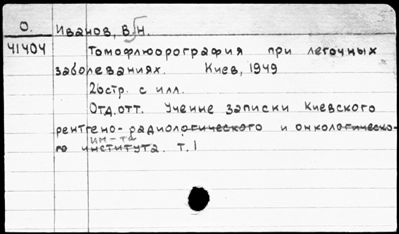 О. Иванов, В. Н.
41404 Томофлюорография при легочных
заболеваниях. Киев, 1949
26стр. с илл.
Отд.отт. Учение записки Киевского
рентгено-радиологического и онкологическо-
им-та
го института. т.1